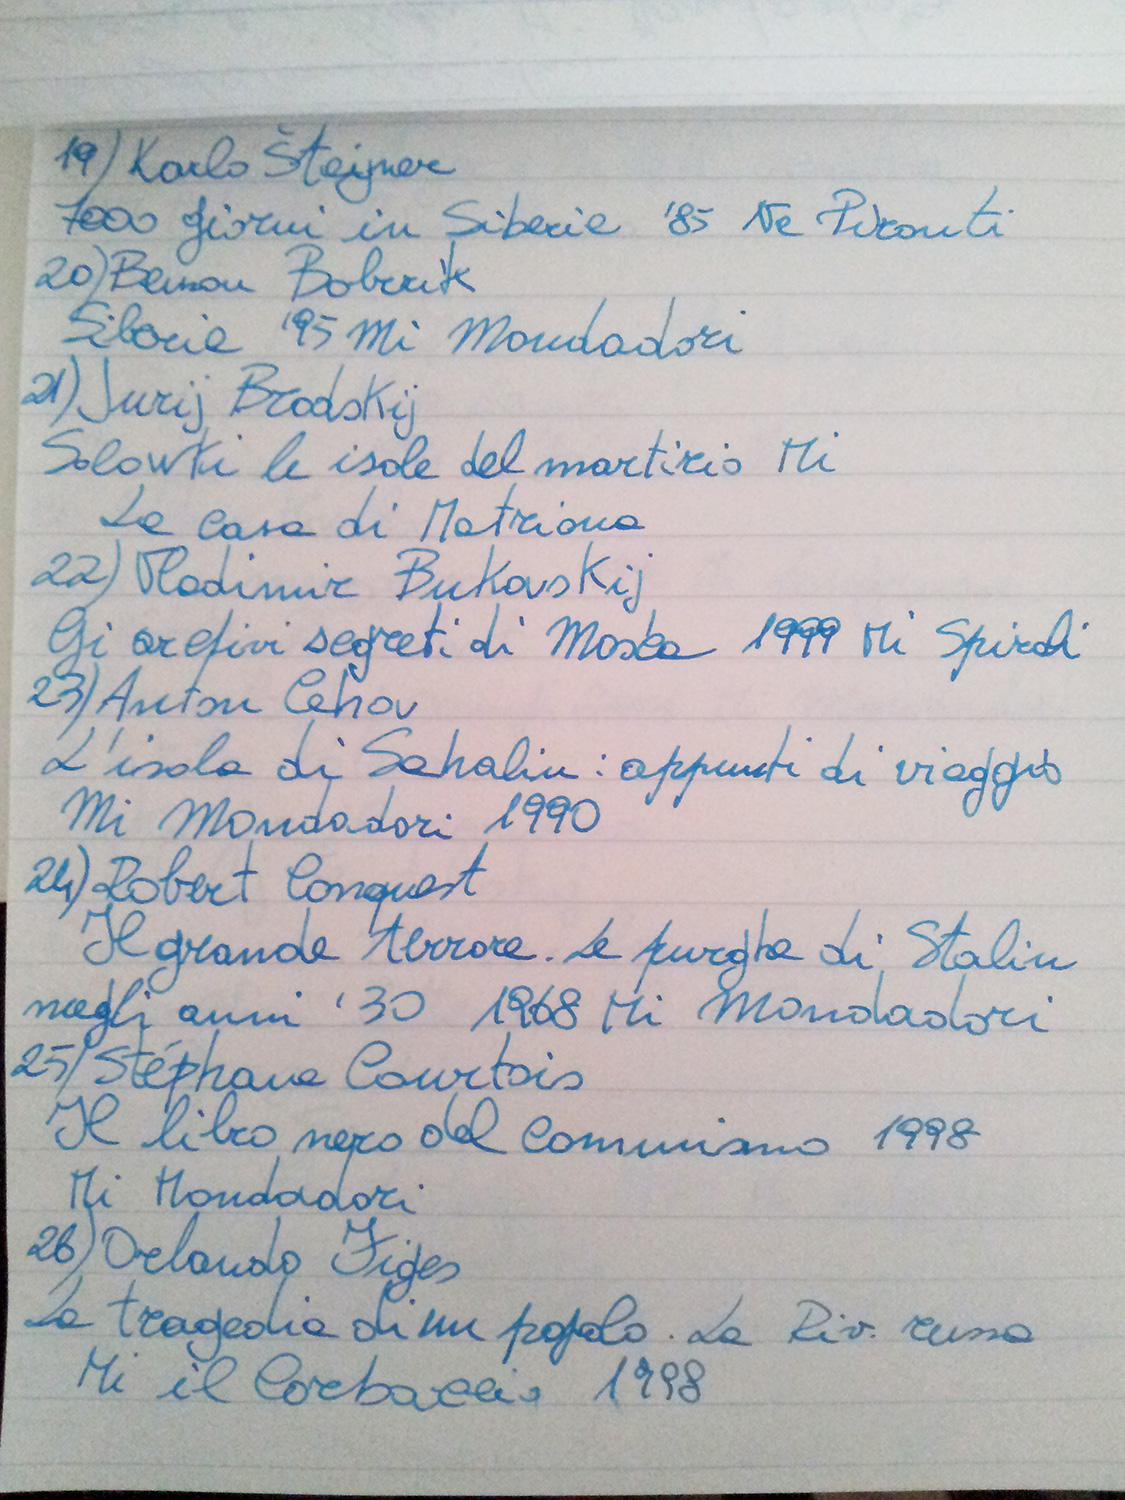 19) Karlo Štajner
7000 giorni in Siberia '85 Na Pironti
20) Benson Bobrick
Siberia '95 Mi Mondadori
21) Jurij Brodskij
Solowki le isole del martirio Mi
La casa di Matriona
22) Vladimir Bukovskij
Gi archivi segreti di Mosca 1999 Mi Spirali
23) Anton Cehov
L'isola di Sahalin: appunti di viaggio
Mi Mondadori 1990
24) Robert Conquest
Il grande terrore. Le purghe di Stalin
negli anni '30 1968 Mi Mondadori
25) Stéphane Courtois
Il libro nero del comunismo 1998
Mi Mondadori
26) Orlando Figes
La tragedia di un popolo. La Riv. russa
Mi il Corbaccio 1998